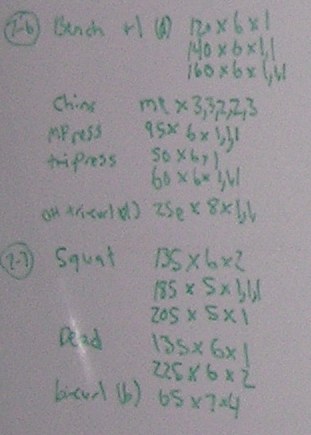 7-6 Bench +1 (d) 120 x 6 x 1
140 x 6 x 1,1
160 x 6 x 1,1,1
Chins me x 3,3,2,2,3
MPress 95 x 6 x 1,1,1
triPress 50 x 6 x 1
60 x 6 x 1,1,1
OH tricurl (d) 25e x 8 x 1,1,
7-7 Squat 135 x 6 x 2
185 x 5 x 1,1,1
205 x 5 x 1
Dead 135 x 6 x 1
225 x 6 x 2
bicurl (b) 65 x 7 x 4